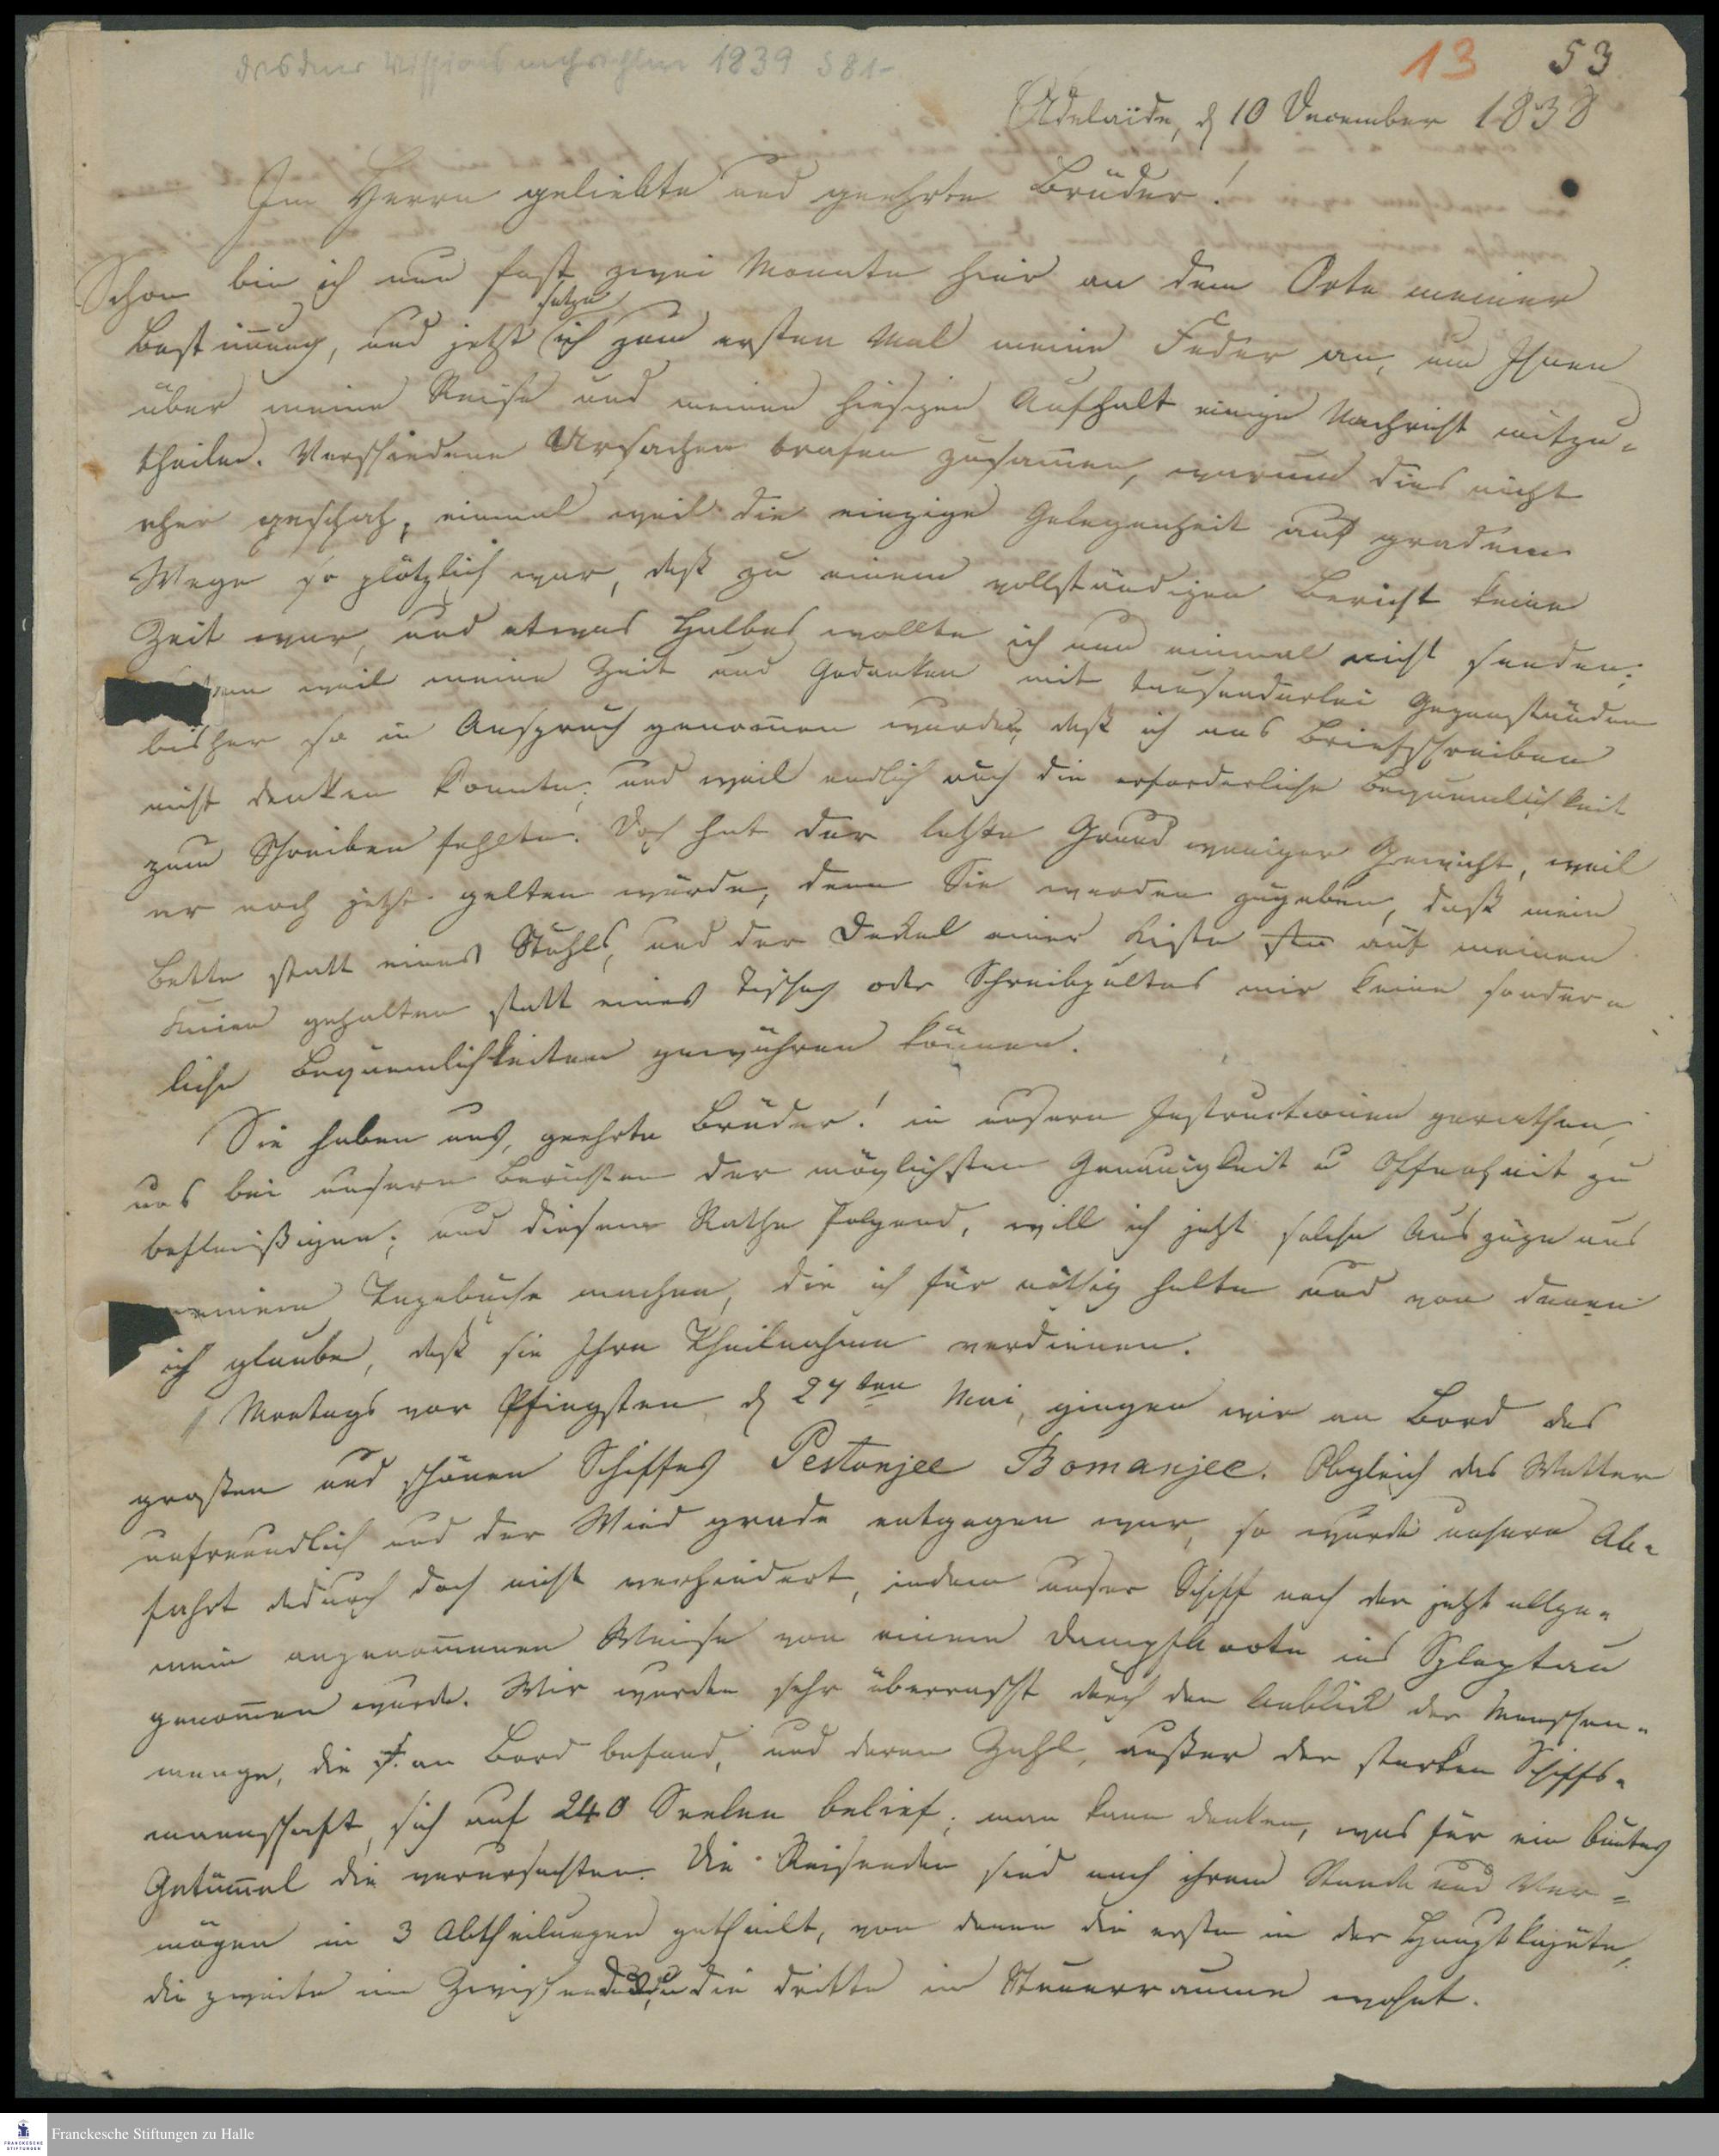 Dresdner Missionsnachrichten 1839 S 81-
13 53
Adelaïde, d 10 December 1838
Im Herrn geliebte und geehrte Brüder!
Schon bin ich nun fast zwei Monate hier an dem Orte meiner
setze
Bestim̅ung, und jetzt ich zum ersten Mal meine Feder an, um Ihnen
über meine Reise und meinen hiesigen Aufhalt einige Nachricht mitzu-
theilen. Verschiedene Ursachen trafen zusam̅en, warum dies nicht
eher geschah; einmal weil die einzige Gelegenheit auf gradem
Wege so plötzlich war, daß zu einem vollständigen Bericht keine
Zeit war, und etwas Halbes wollte ich nun einmal nicht senden;
weil meine Zeit und Gedanken mit tausenderlei Gegenständen
bisher so in Anspruch genom̅en wurden, daß ich ans Briefschreiben
nicht denken konnte; und weil endlich auch die erforderliche Bequemlichkeit
zum Schreiben fehlte. Doch hat der letzte Grund weniger Gewicht, weil
er noch jetzt gelten würde, denn Sie werden zugeben, daß mein
Bette statt eines Stuhls, und der Deckel einer Kiste auf meinen
Knien gehalten statt eines Tisches oder Schreibpultes mir keine sonder-
liche Bequemlichkeiten gewähren können.
Sie haben uns, geehrte Brüder! in unsern Instructionen gerathen,
uns bei unsern Berichten der möglichsten Genauigkeit u Offenheit zu
befleißigen; und diesem Rathe folgend, will ich jetzt solche Auszüge aus
meinem Tagebuche machen, die ich für nöthig halte und von denen
ich glaube, daß sie Ihre Theilnahme verdienen.
Montags vor Pfingsten, d 27ten Mai, gingen wir an Bord des
großen und schönen Schiffes Pestonjee Bomanjee. Obgleich das Wetter
unfreundlich und der Wind grade entgegen war, so wurde unsere Ab-
fahrt dadurch doch nicht verhindert, indem unser Schiff nach der jetzt allge-
mein angenom̅enen Weise von einem Dampfboote ins Schlepptau
genom̅en wurde. Wir wurden sehr überrascht durch den Anblick der Menschen-
menge, die s. an Bord befand, und deren Zahl, außer der starken Schiffs-
mannschaft, sich auf 240 Seelen belief; man kann denken, was für ein buntes
Getüm̅el die verursachten. Die Reisenden sind nach ihrem Stande und Ver-
mögen in 3 Abtheilungen getheilt, von denen die erste in der Hauptkajüte,
die zweite im Zwischendeck, die dritte im Steuerraume wohnt.
Franckesche Stiftungen zu Halle